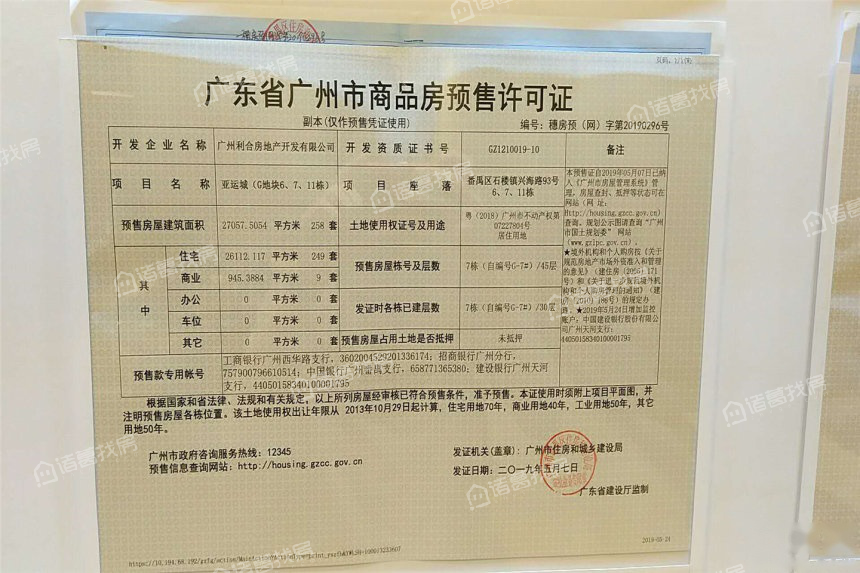 页码：1/1(页)
广东省广州市商品房预售许可证
副本(仅作预售凭证使用)
编号：穗房预（网）字第20190296号
开发企业名称 广州利合房地产开发有限公司 开发资质证书号 GZ1210019-10 备注
项目名称 亚运城（G地块6、7、11栋） 项目座落 番禺区石楼镇兴海路93号
6、7、11栋
预售房屋建筑面积 27057.5054 平方米 258 套 土地使用权证号及用途 粤（2018）广州市不动产权第
07227804号
居住用地
其中
住宅 26112.117 平方米 249 套 预售房屋栋号及层数 7栋（自编号G-7#）/45层
商业 945.3884 平方米 9 套
办公 0 平方米 0 套 发证时各栋已建层数 7栋（自编号G-7#）/30层
车位 0 平方米 0 套
其它 0 平方米 0 套 预售房屋占用土地是否抵押 未抵押
预售款专用帐号 工商银行广州西华路支行，3602004529201336174；招商银行广州分行，
757900796610514；中国银行广州番禺支行，658771365380；建设银行广州天河
支行，44050158340100001795
本预售证自2019年05月07日已纳
入《广州市房屋管理系统》管
理，房屋查封、抵押等状态可在
网站（网 址：
Http://housing.gzcc.gov.cn）
查询。规划公示图请查询“广州
市国土规划委” 网站
（www.gzlpc.gov.cn）。
★境外机构和个人购房按《关于
规范房地产市场外资准入和管理
的意见》（建住房〔2006〕171
号）和《关于进一步规范境外机
构和个人购房管理的通知》（建
房〔2010〕186号）的规定办
理。★2019年5月24日增加监控
账户：中国建设银行股份有限公
司广州天河支行：
44050158340100001795
根据国家和省法律、法规和有关规定，以上所列房屋经审核已符合预售条件，准予预售。本证使用时须附上项目平面图，并
注明预售房屋各栋位置。该土地使用权出让年限从 2013年10月29日起计算，住宅用地70年，商业用地40年，工业用地50年，其它
用地50年。
广州市政府咨询服务热线：12345
预售信息查询网站：http://housing.gzcc.gov.cn
发证机关(盖章)：广州市住房和城乡建设局
发证日期：二〇一九年五月七日
广东省建设厅监制
2019-05-24
诸葛找房